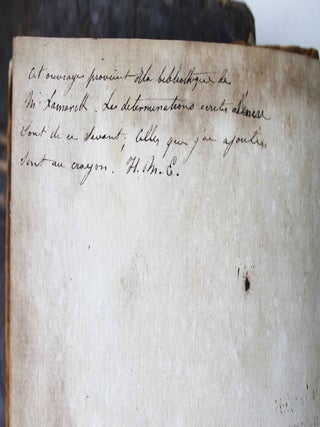 Cet ouvrage provient de la bibliothèque de
Mr Lamarck. Les determinations ecrites a l'encre
sont de ce Savant, celles que j'ai ajoutées
sont au crayon. H. M. E.